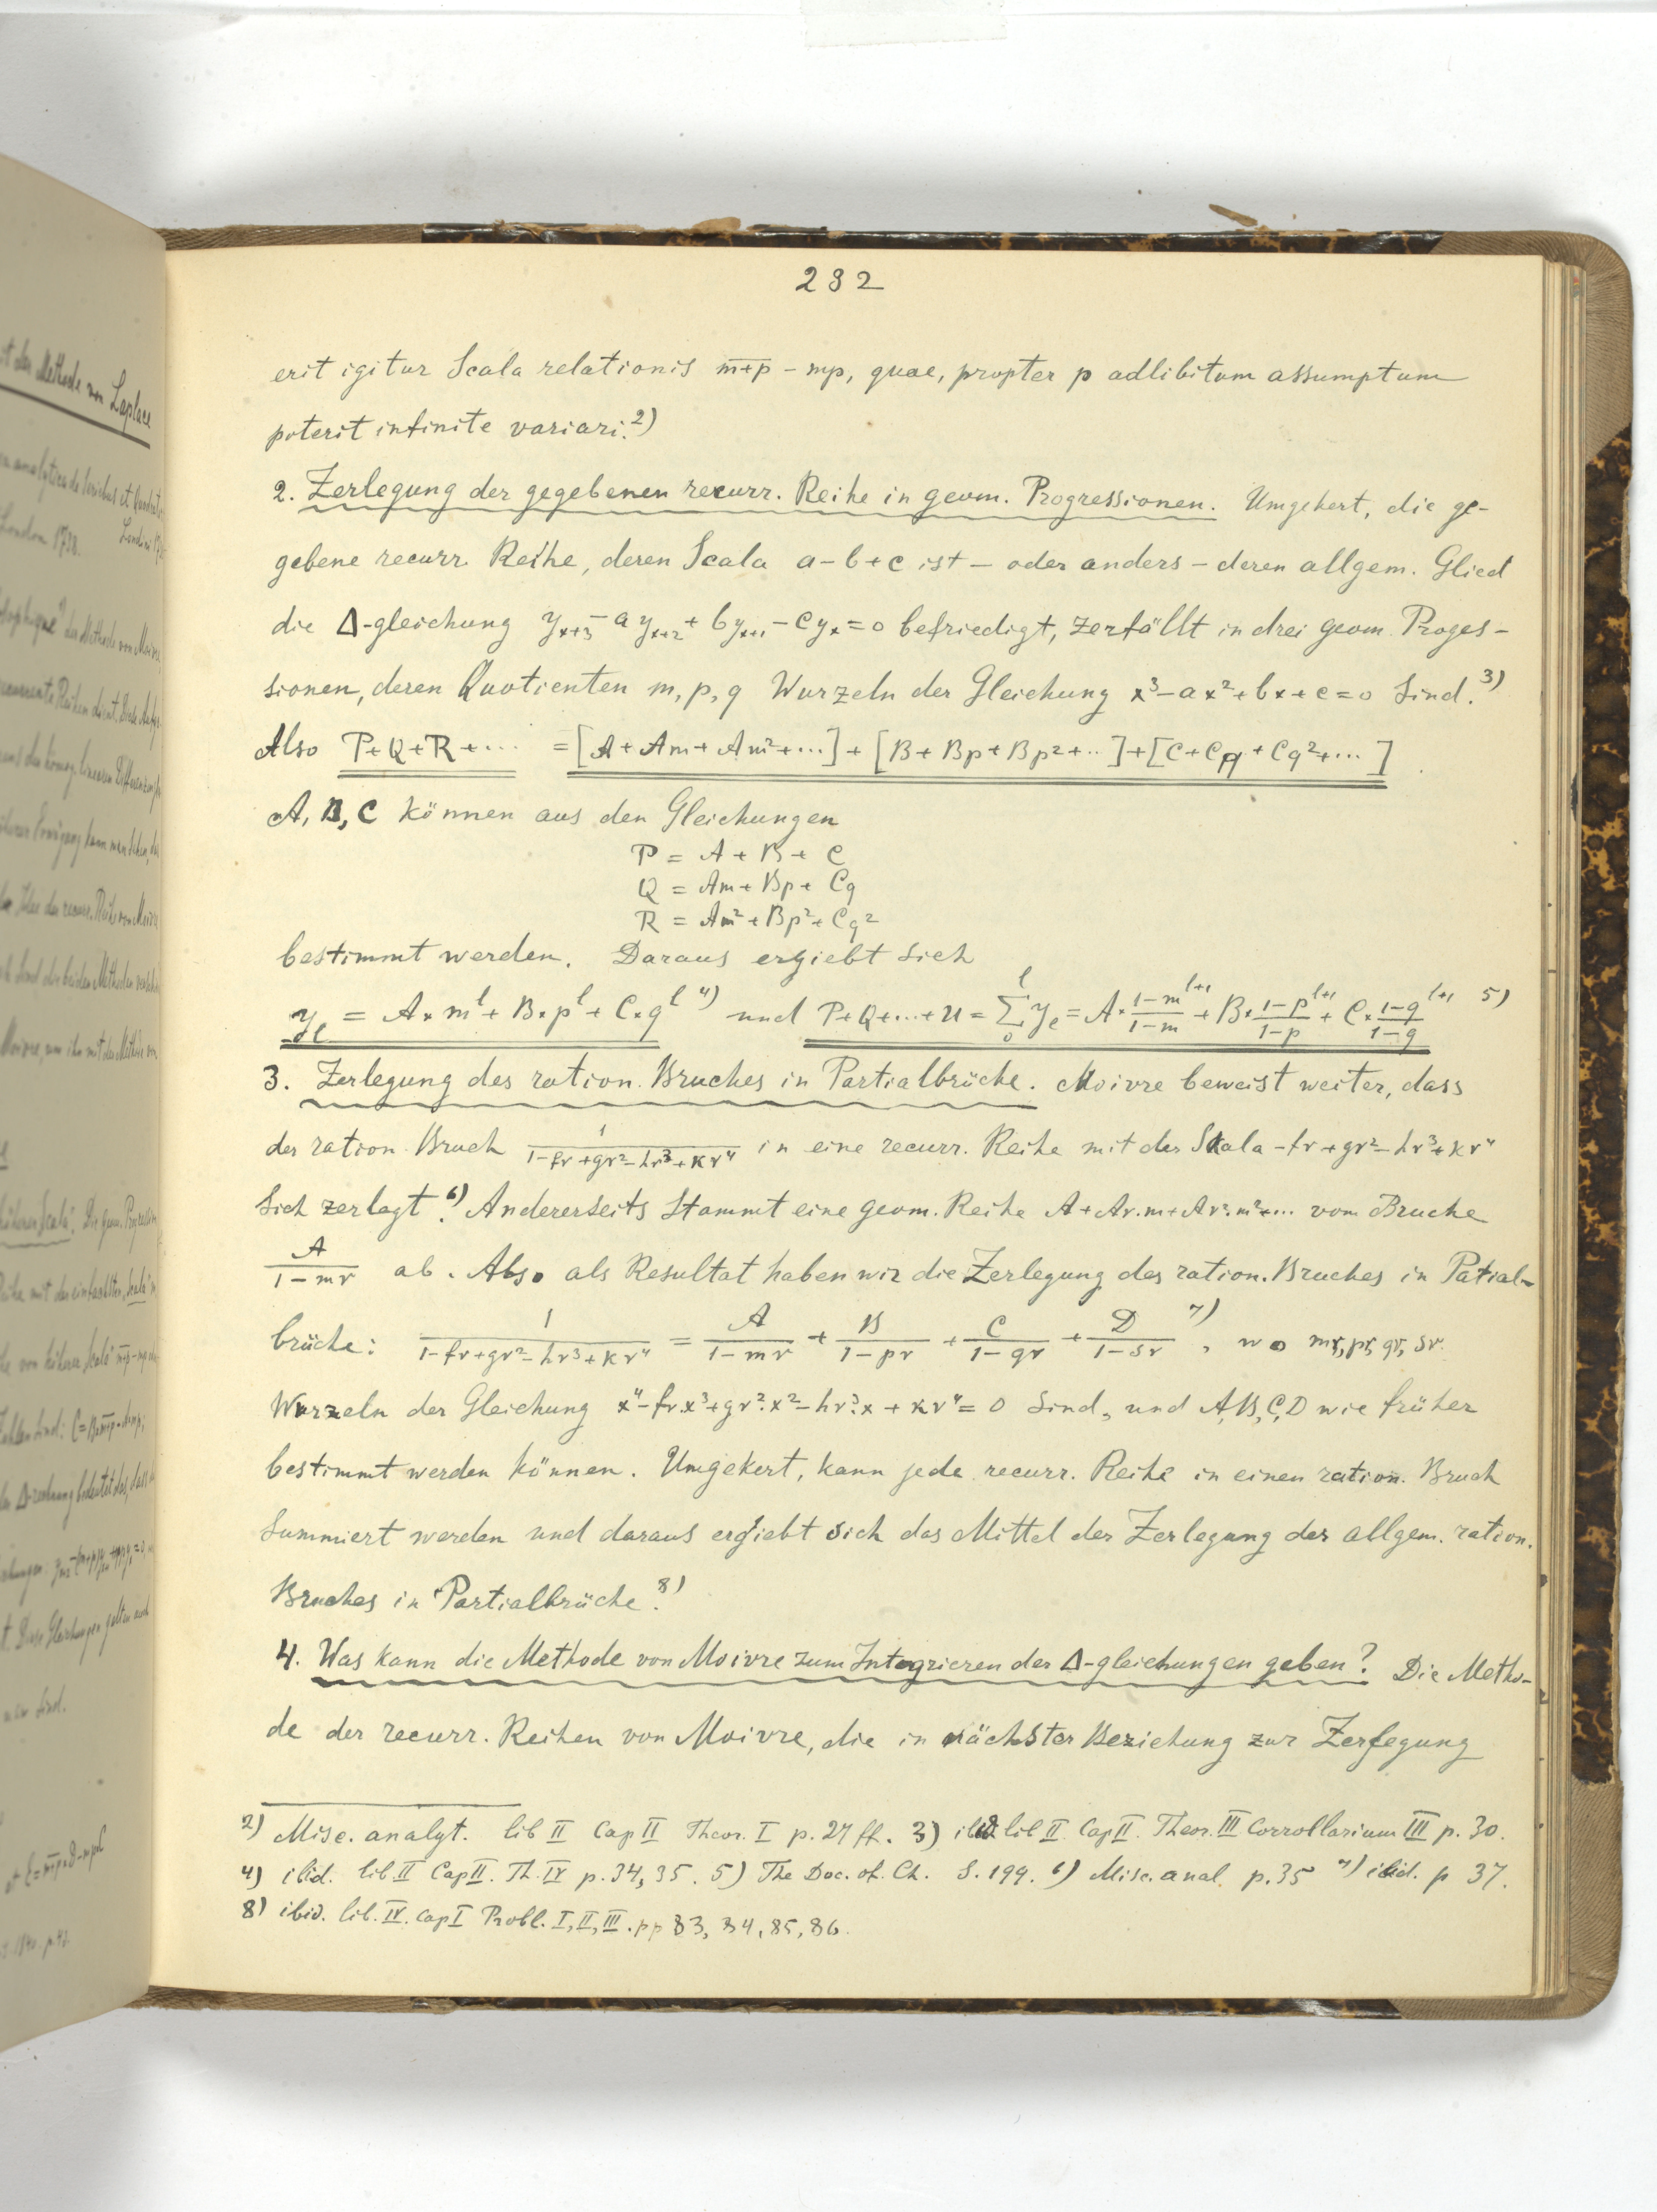 232
erit igitur Scala relationis m+p - mp, quae, propter p adlibitum assumptum
poterit infinite variari.2)
2. Zerlegung der gegebenen recurr. Reihe in geom. Progressionen. Umgekert, die ge-
gebene recurr. Reihe, deren Scala a-b+c ist - oder anders - deren allgem. Glied
die Δ-gleichung yₓ₊₃ - ayₓ₊₂ + byₓ₊₁ - cyₓ = 0 befriedigt, zerfällt in drei geom. Proges-
sionen, deren Quotienten m, p, q Wurzeln der Gleichung x³-ax²+bx+c=0 sind.3)
Also P+Q+R+... = [A+Am+Am²+...]+[B+Bp+Bp²+..]+[C+Cq+Cq²+...]
A, B, C können aus den Gleichungen
P = A + B + C
Q = Am + Bp + Cq
R = Am² + Bp² + Cq²
bestimmt werden. Daraus ergiebt sich
yₗ = A×mˡ + B×pˡ + C×qˡ 4) und P+Q+...+U = Σ₀ˡ yₗ = A×(1-mˡ⁺¹)/(1-m) + B×(1-pˡ⁺¹)/(1-p) + C×(1-qˡ⁺¹)/(1-q) 5)
3. Zerlegung des ration. Bruches in Partialbrüche. Moivre beweist weiter, dass
der ration. Bruch 1/(1-fr+gr²-hr³+kr⁴) in eine recurr. Reihe mit der Skala -fr+gr²-hr³+kr⁴
sich zerlegt.6) Andererseits stammt eine geom. Reihe A+Ar.m+Ar².m²+... vom Bruche
A/(1-mr) ab. Also als Resultat haben wir die Zerlegung des ration. Bruches in Patial-
brüche: 1/(1-fr+gr²-hr³+kr⁴) = A/(1-mr) + B/(1-pr) + C/(1-qr) + D/(1-sr) 7), wo mr, pr, qr, sr.
Wurzeln der Gleichung x⁴-fr.x³+gr².x²-hr³.x+kr⁴=0 sind, und A,B,C,D wie früher
bestimmt werden können. Umgekert, kann jede recurr. Reihe in einen ration. Bruch
summiert werden und daraus ergiebt sich das Mittel der Zerlegung des allgem. ration.
Bruches in Partialbrüche.8)
4. Was kann die Methode von Moivre zum Integrieren der Δ-gleichungen geben? Die Metho-
de der recurr. Reihen von Moivre, die in nächster Beziehung zur Zerlegung
2) Misc. analyt. lib II Cap II Theor. I p. 27 ff. 3) ibid lib II. Cap II. Theor. III Corrollarium III p. 30.
4) ibid. lib. II Cap II. Th. IV p. 34, 35. 5) The Doc. of. Ch. S. 199. 6) Misc. anal. p. 35 7) ibid. p 37.
8) ibid. lib. IV. Cap I Probl. I, II, III. pp 83, 84, 85, 86.